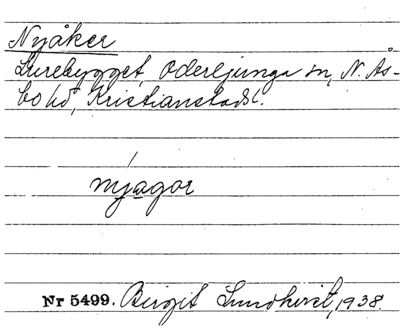 Nyåker
Lurebygget, Oderljunga sn, N. Ås-
bo hd, Kristianstads l.
nýagor
Nr 5499. Birgit Lundkvist, 1938.